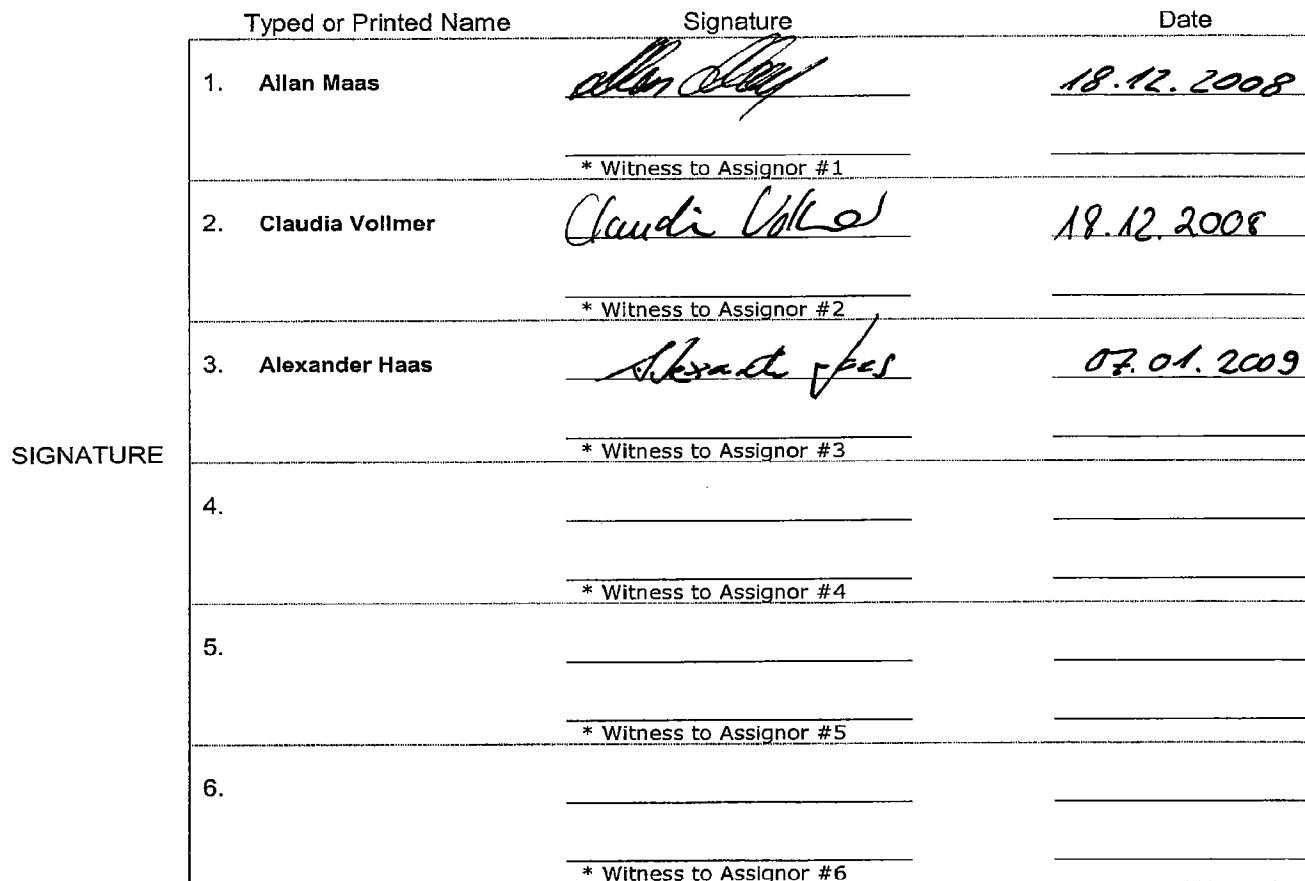 Typed or Printed Name Signature Date
1. Allan Maas Allan Maas 18.12.2008
* Witness to Assignor #1
2. Claudia Vollmer Claudia Vollmer 18.12.2008
* Witness to Assignor #2
3. Alexander Haas Alexander Haas 07.01.2009
SIGNATURE
* Witness to Assignor #3
4.
* Witness to Assignor #4
5.
* Witness to Assignor #5
6.
* Witness to Assignor #6